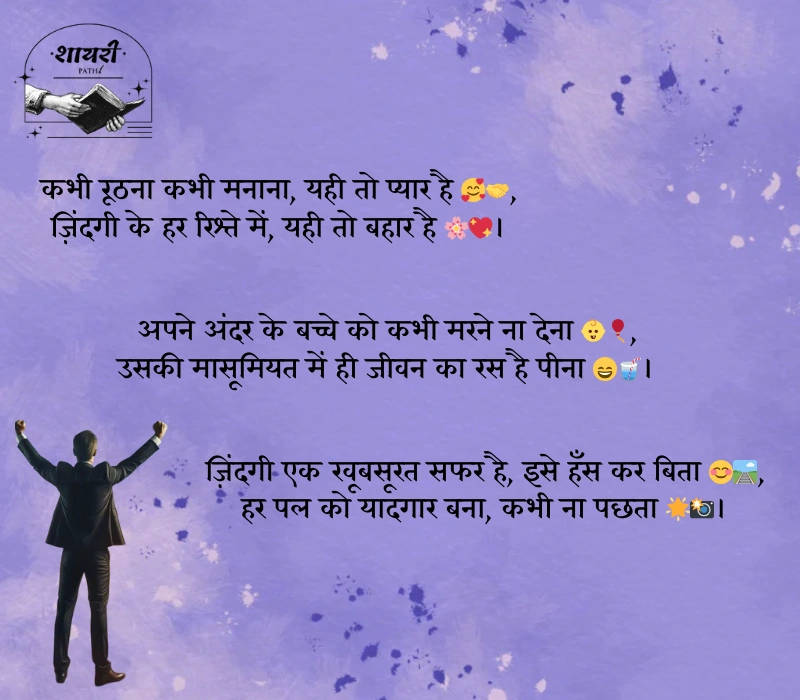 शायरी
PATH
कभी रूठना कभी मनाना, यही तो प्यार है 🥰🤝,
ज़िंदगी के हर रिश्ते में, यही तो बहार है 🌸💖।
अपने अंदर के बच्चे को कभी मरने ना देना 👶🎈,
उसकी मासूमियत में ही जीवन का रस है पीना 😄🥤।
ज़िंदगी एक खूबसूरत सफर है, इसे हँस कर बिता 😊🛤️,
हर पल को यादगार बना, कभी ना पछता 🌟📸।